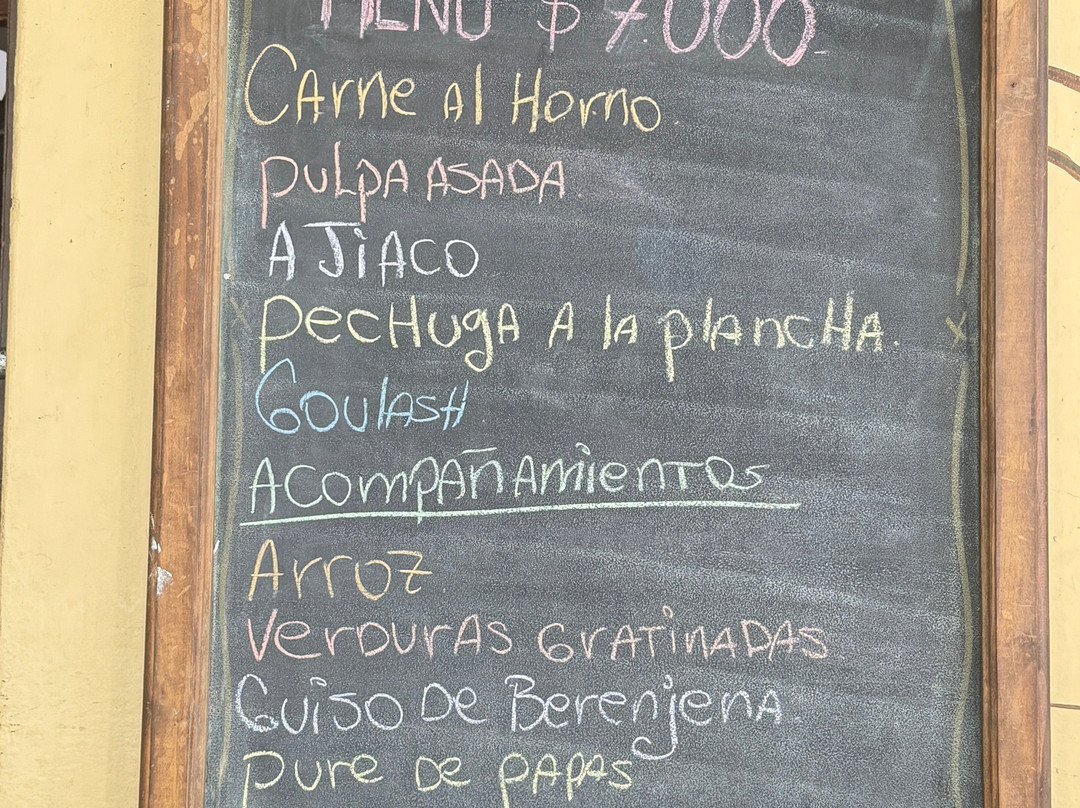 MENU $ 7.000
CArne Al Horno
pULpA ASADA
AJiACO
pecHugA A lA plancHA.
GOUlASH
ACompAñAmienTOS
Arroz
VerDurAS GrATinADAS
Guiso De Berenjena
pure De pApAs